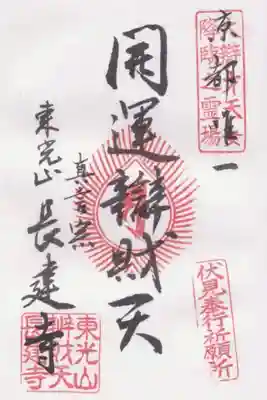 京都唯一
辯才天
降臨之霊場
開運辯財天
真言宗
東光山 長建寺
伏見奉行祈願所
東光山
辯財天
長建寺